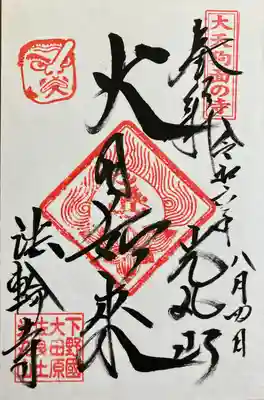 大天狗面の寺
奉拝
令和六年八月四日
光丸山
大日如来
法輪寺
下野國
大田原
佐良土